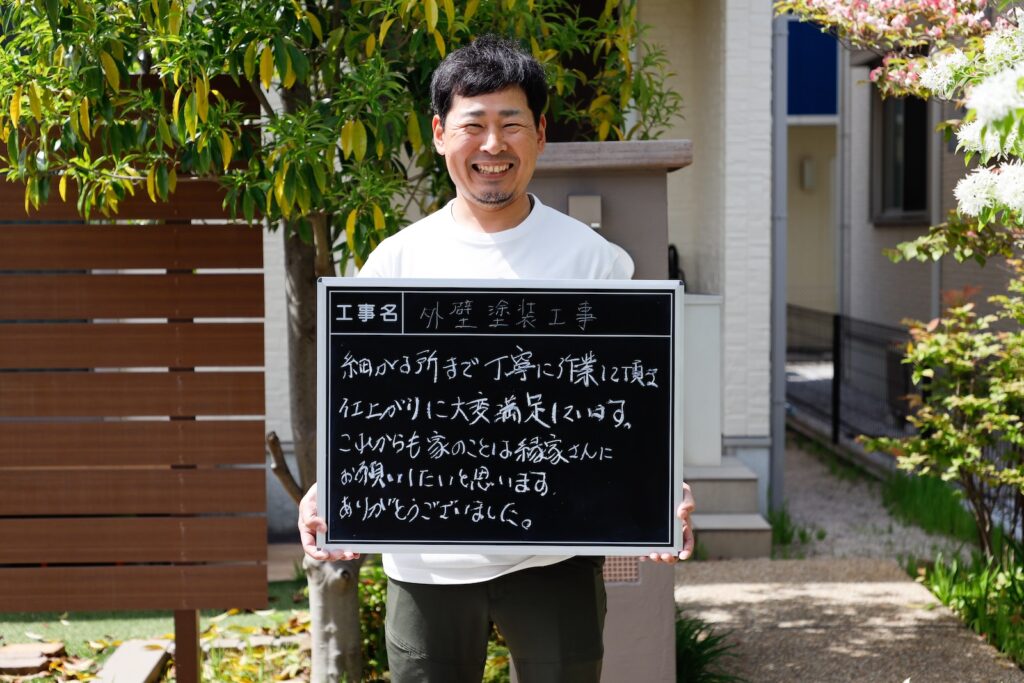 工事名 外壁塗装工事
細かる所まで丁寧に作業して頂き
仕上がりに大変満足しています。
これからも家のことは縁家さんに
お願いしたいと思います。
ありがとうございました。